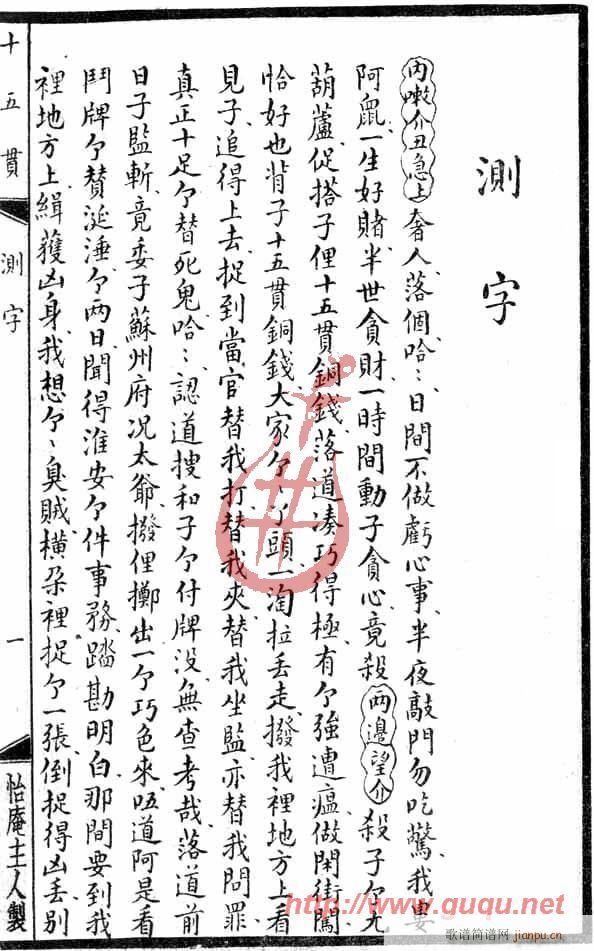 測字
內嗽介丑急上奢人落個哈〻日間不做虧心事半夜敲門勿吃驚我婁
阿鼠一生好賭半世貪財一時間動子貪心竟殺兩邊望介殺子ケ尤
葫蘆促搭子俚十五貫銅錢落道湊巧得極有ケ強遭瘟做閑街闖
恰好也背子十五貫銅錢大家ケ〻丫頭一淘拉丟走撥我裡地方上看
見子追得上去捉到當官替我打替我夾替我坐監亦替我問罪
真正十足ケ替死鬼哈〻認道搜和子ケ付牌没無查考哉落道前
日子監斬竟委子蘇州府况太爺撥俚擲出一ケ巧色來唔道阿是看
鬥牌ケ贊涎唾ケ两日聞得淮安ケ件事務踏勘明白那間要到我
裡地方上緝獲凶身我想ケ〻臭賊橫朶裡捉ケ一張倒捉得凶丟别
十五貫
測字
一
怡庵主人製
www.ququ.net
歌谱简谱网
jianpu.cn